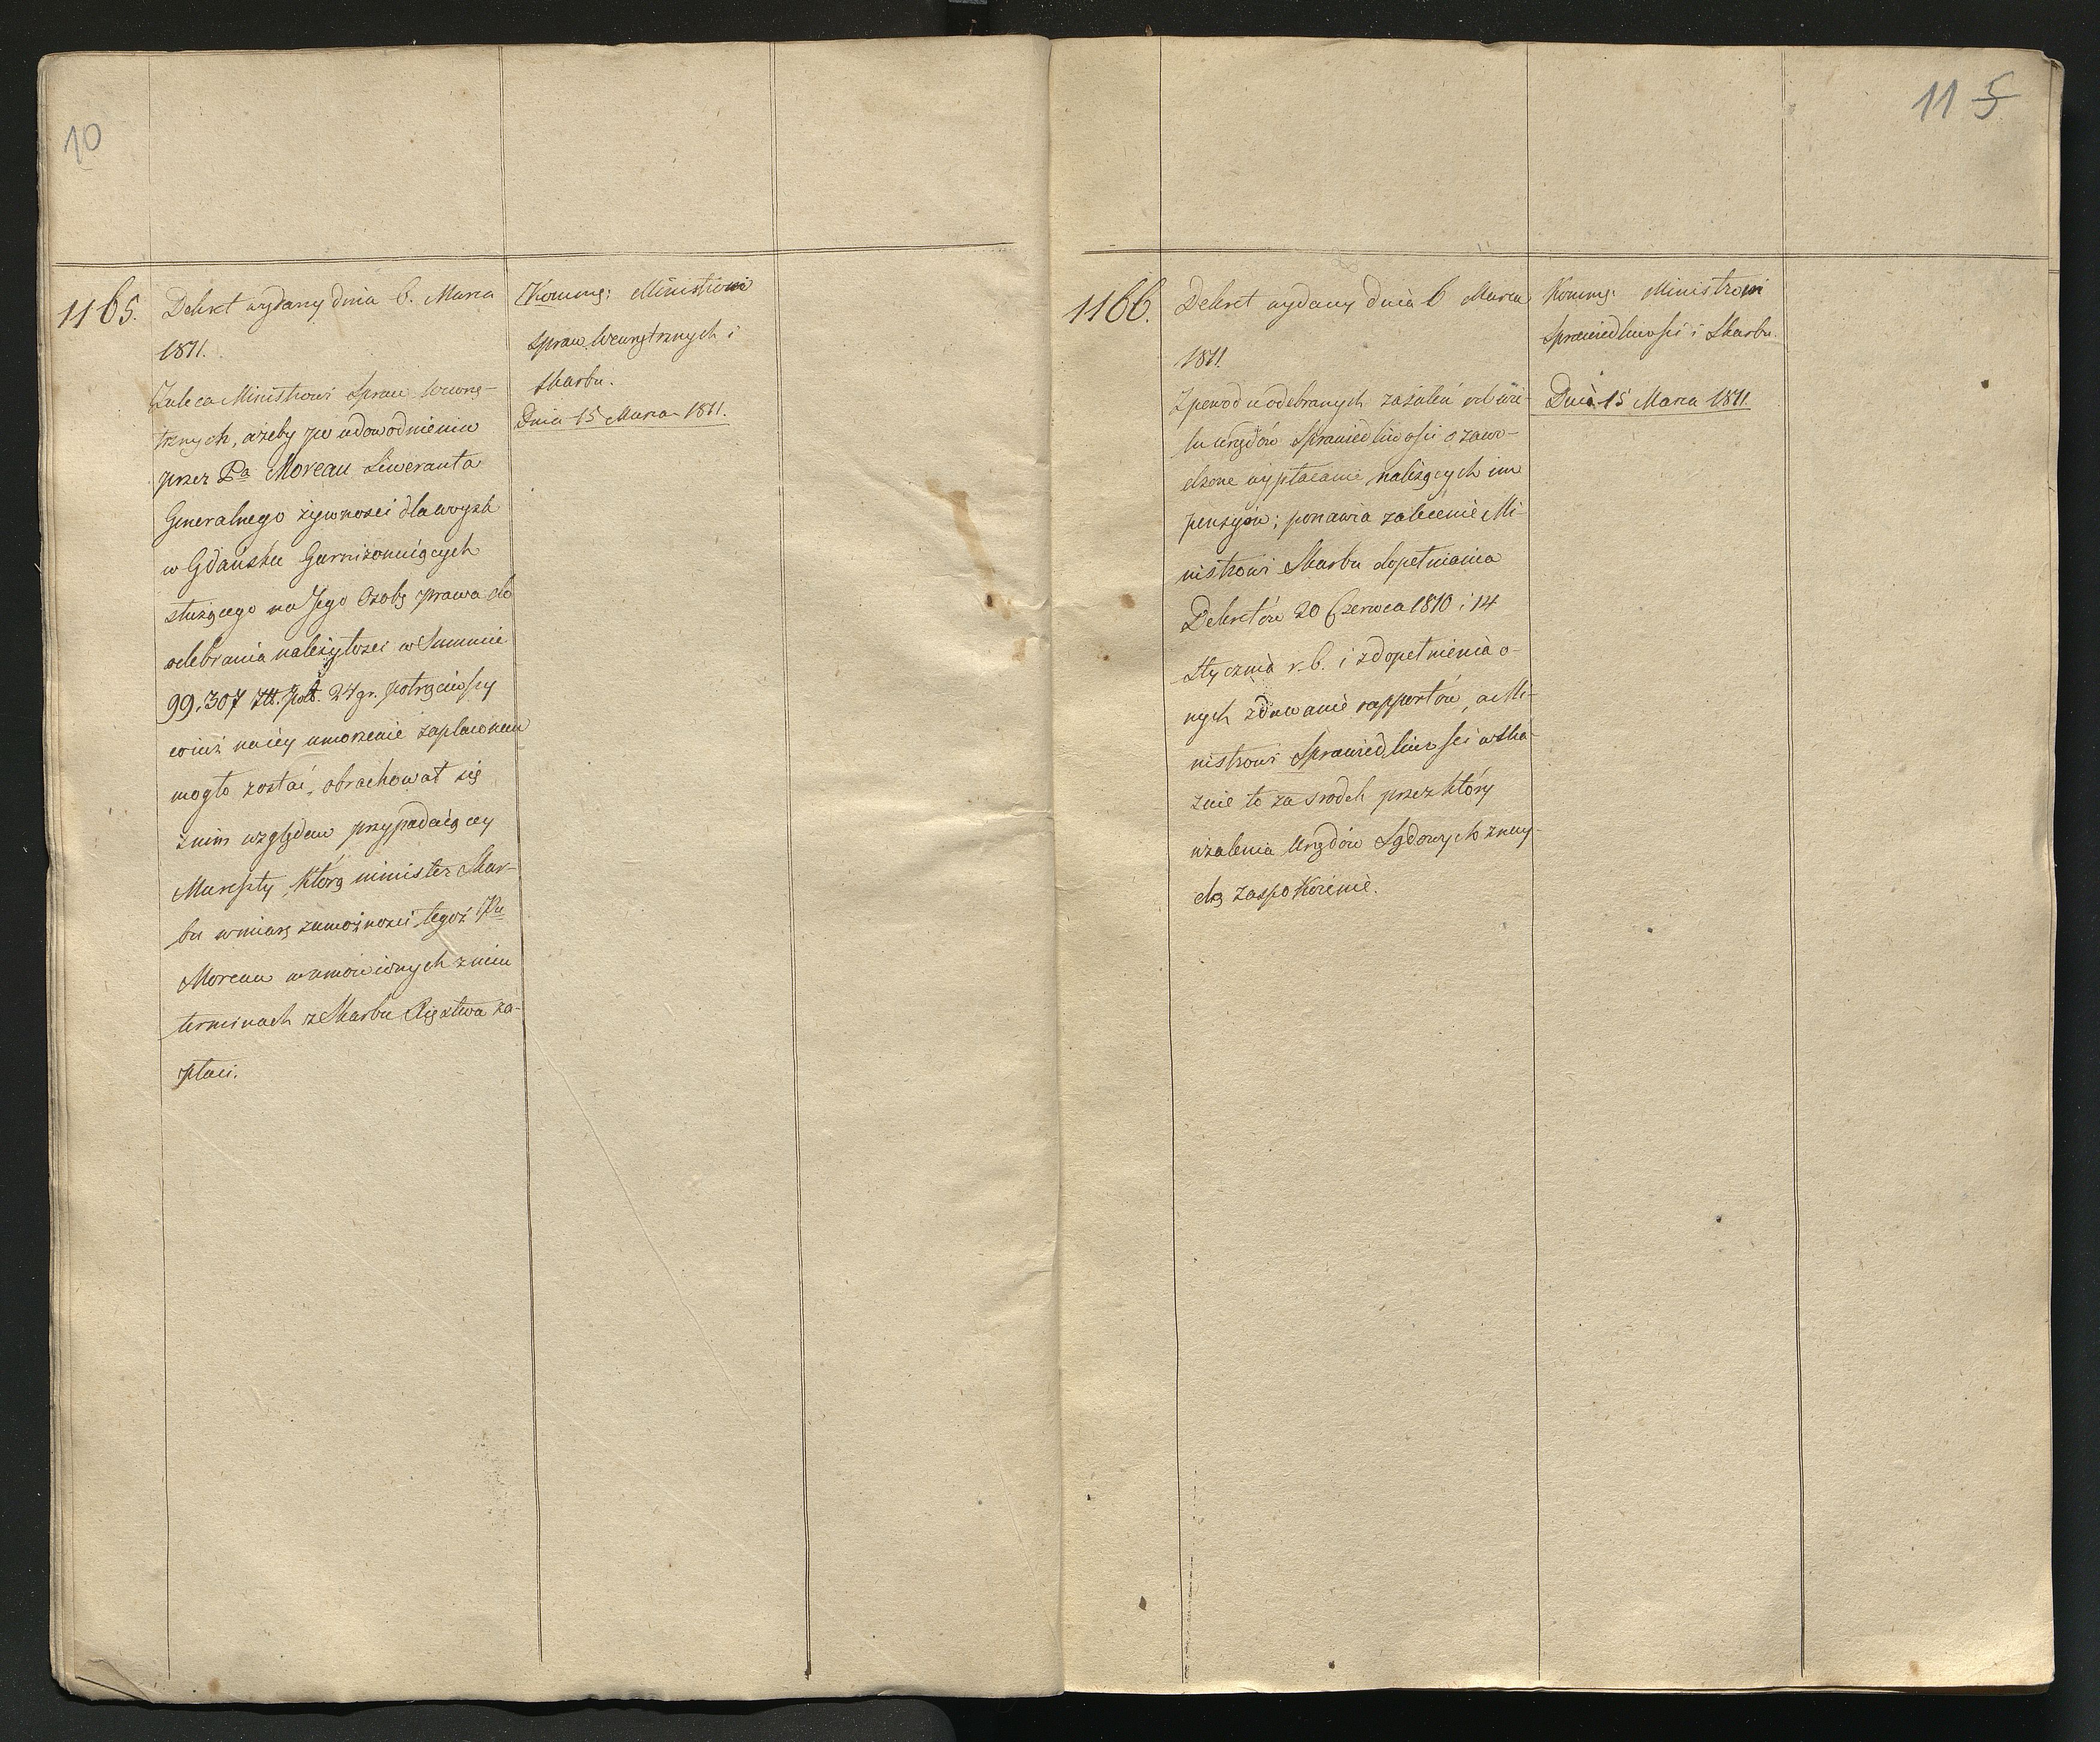 10
1165.
Dekret wydany dnia 6. Marca
1811.
Zaleca Ministrowi Spraw Wewnę-
trznych, ażeby po udowodnieniu
przez Pa Moreau Liweranta
Generalnego żywności dla woysk
w Gdańsku Garnizonuiących
służącego na Jego Osobę prawa do
odebrania należytości w Summie
99,307 Złł. pol. 24 gr. potrąciwszy
co iuż na iey umorzenie zapłaconem
mogło zostać, obrachował się
z nim względem przypadaiącey
Mu reszty, którą minister Skar-
bu w miarę zamożności tegoż Pu
Moreau w umówionych z nim
terminach z Skarbu Xięstwa za-
płaci.
Kommg: Ministrowi
Spraw Wewnętrznych i
Skarbu.
Dnia 15 Marca 1811.
11 5
1166.
Dekret wydany dnia 6 Marca
1811.
Z powodu odebranych zażaleń od wie-
lu urzędów Sprawiedliwości o zawo-
dzone wypłacanie należących im
pensyów; ponawia zalecenie Mi-
nistrowi Skarbu dopełniania
Dekretów 20 Czerwca 1810 i 14
Stycznia r. b. i z dopełnienia o-
nych zdawanie rapportów, a Mi-
nistrowi Sprawiedliwości wska-
zuie to za srodek przez który
użalenia Urzędów Sądowych znay-
dą zaspokoienie.
Kommg: Ministrowi
Sprawiedliwości i Skarbu.
Dnia 15 Marca 1811